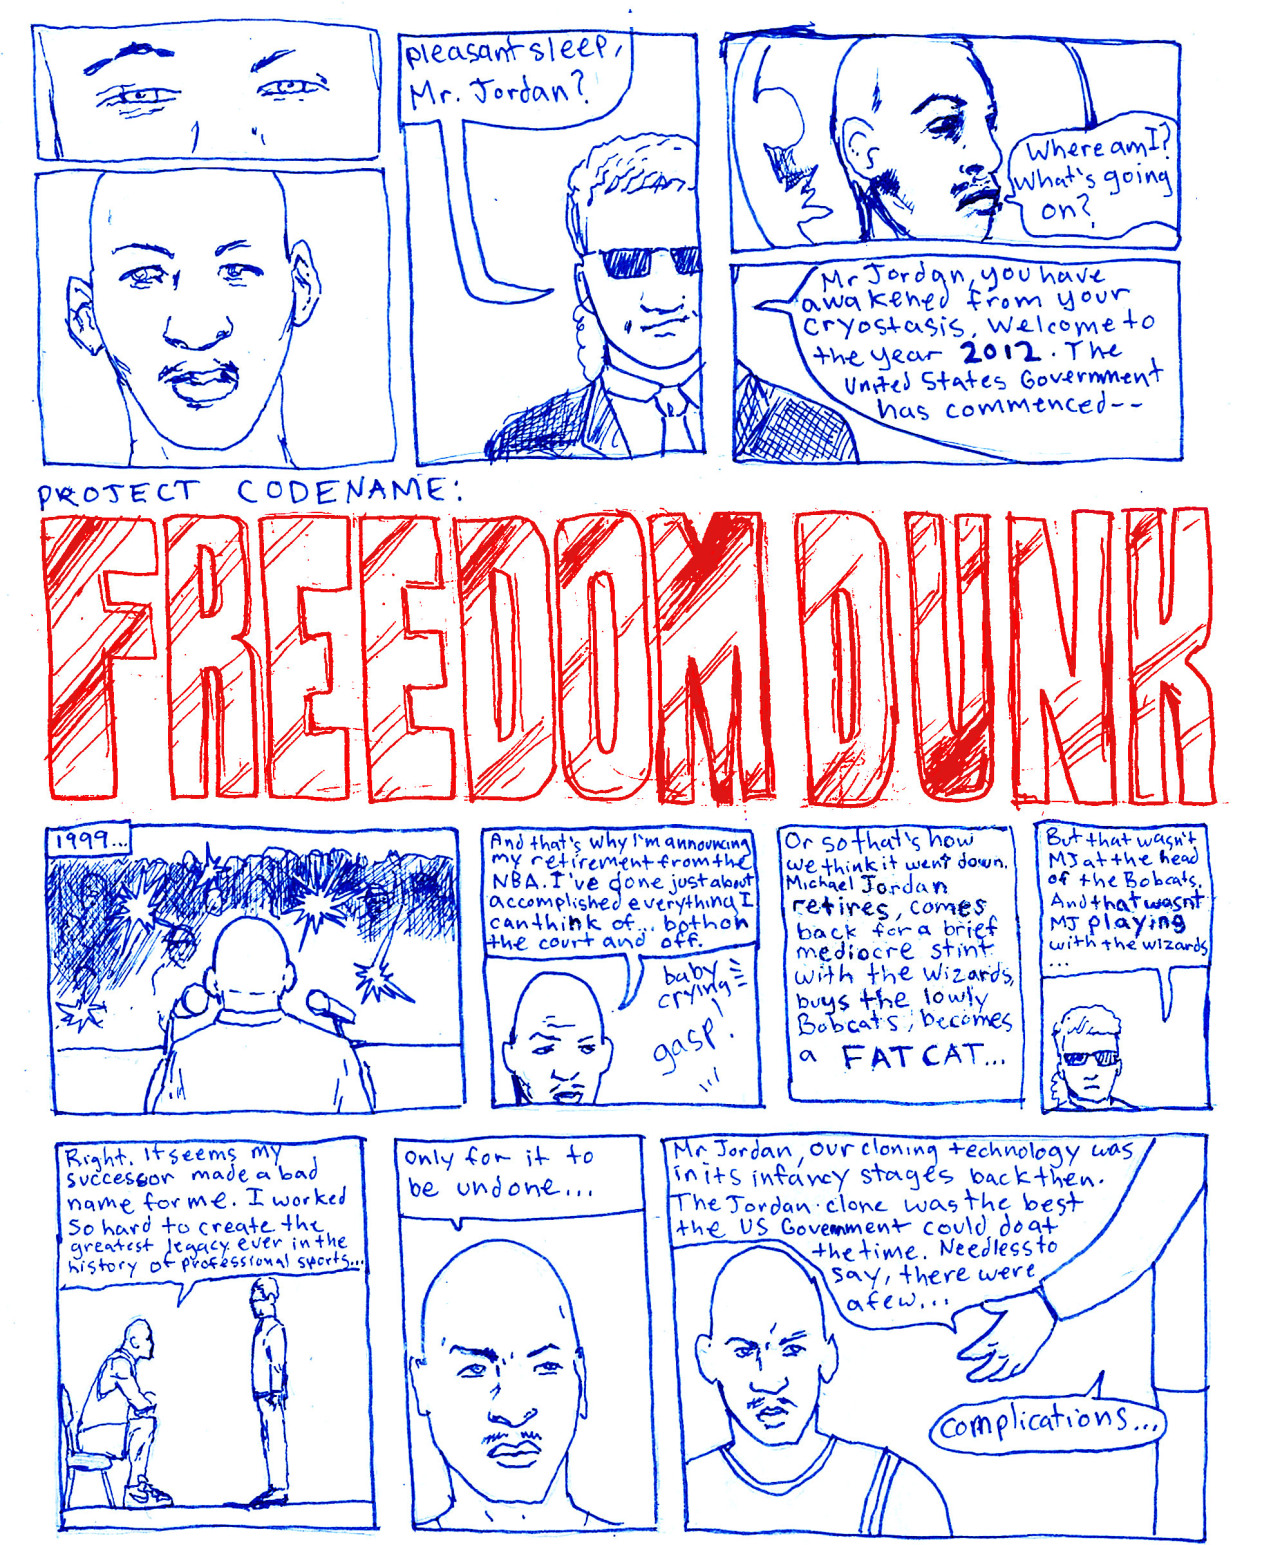 pleasant sleep,
Mr. Jordan?
Where am I?
What's going
on?
Mr Jordan, you have
awakened from your
cryostasis. Welcome to
the year 2012. The
United States Government
has commenced--
PROJECT CODENAME:
FREEDOM DUNK
1999...
And that's why I'm announcing
my retirement from the
NBA. I've done just about
accomplished everything I
can think of... both on
the court and off.
baby
crying
gasp!
Or so that's how
we think it went down.
Michael Jordan
retires, comes
back for a brief
mediocre stint
with the Wizards,
buys the lowly
Bobcats, becomes
a FAT CAT...
But that wasn't
MJ at the head
of the Bobcats.
And that wasn't
MJ playing
with the wizards
...
Right. It seems my
successor made a bad
name for me. I worked
so hard to create the
greatest legacy ever in the
history of professional sports...
only for it to
be undone...
Mr Jordan, our cloning technology was
in its infancy stages back then.
The Jordan-clone was the best
the US Government could do at
the time. Needless to
say, there were
a few...
complications...